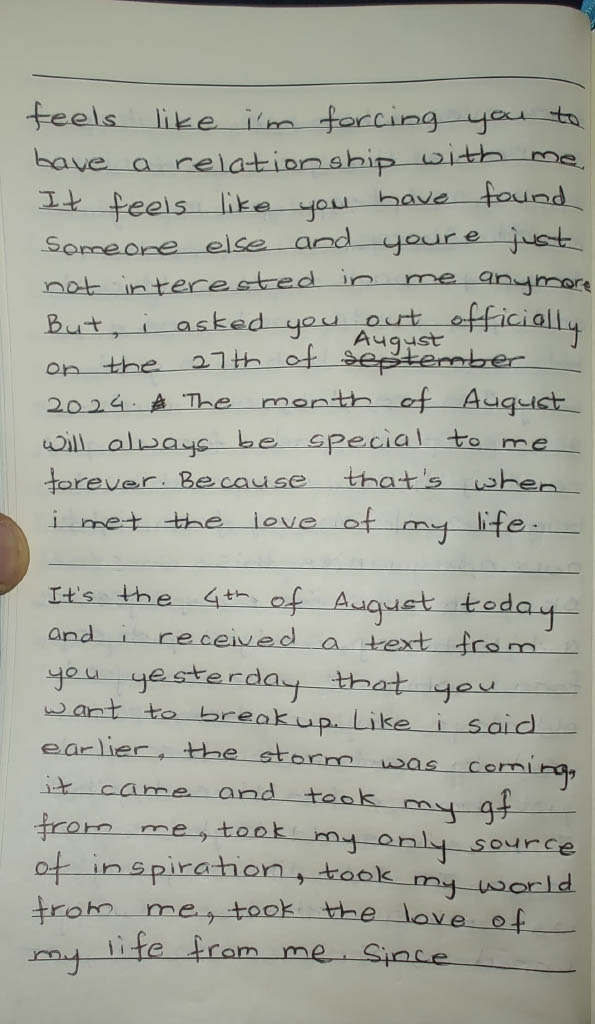 feels like i'm forcing you to
have a relationship with me.
It feels like you have found
someone else and youre just
not interested in me anymore
But, i asked you out officially
August
on the 27th of september
2024. The month of August
will always be special to me
forever. Because that's when
i met the love of my life.
It's the 4th of August today
and i received a text from
you yesterday that you
want to breakup. Like i said
earlier, the storm was coming,
it came and took my gf
from me, took my only source
of inspiration, took my world
from me, took the love of
my life from me. Since